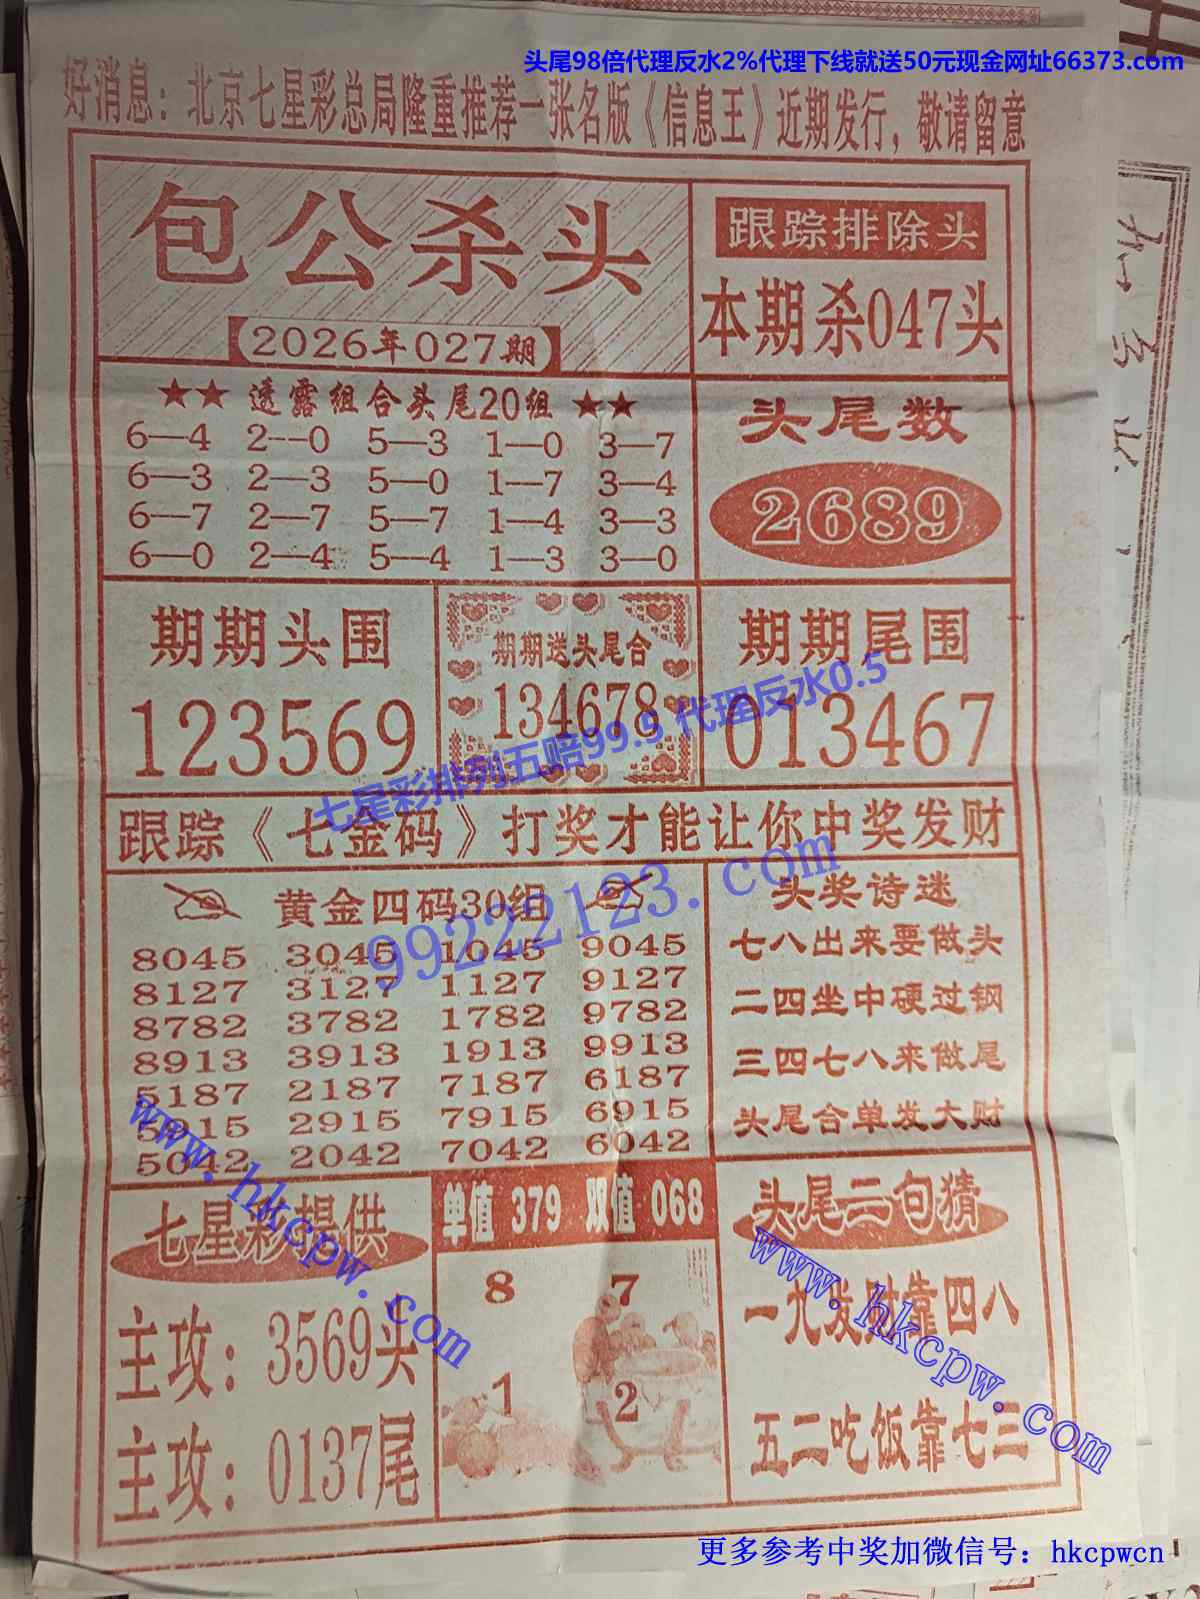 头尾98倍代理反水2%代理下线就送50元现金网址66373.com
好消息：北京七星彩总局隆重推荐一张名版《信息王》近期发行，敬请留意
包公杀头
【2026年027期】
跟踪排除头
本期杀047头
★★ 透露组合头尾20组 ★★
6—4 2--0 5—3 1—0 3—7
6—3 2—3 5—0 1—7 3—4
6—7 2—7 5—7 1—4 3—3
6—0 2—4 5—4 1—3 3—0
头尾数
2689
期期头围
123569
期期送头尾合
134678
期期尾围
013467
七星彩排列五赔99.5 代理反水0.5
跟踪《七金码》打奖才能让你中奖发财
99222123.com
黄金四码30组
8045 3045 1045 9045
8127 3127 1127 9127
8782 3782 1782 9782
8913 3913 1913 9913
5187 2187 7187 6187
5915 2915 7915 6915
5042 2042 7042 6042
头奖诗迷
七八出来要做头
二四坐中硬过钢
三四七八来做尾
头尾合单发大财
七星彩提供
主攻：3569头
主攻：0137尾
www.hkcpw.com
单值 379 双值 068
8 7
1 2
头尾二句猜
一九发财靠四八
五二吃饭靠七三
www.hkcpw.com
更多参考中奖加微信号：hkcpwcn